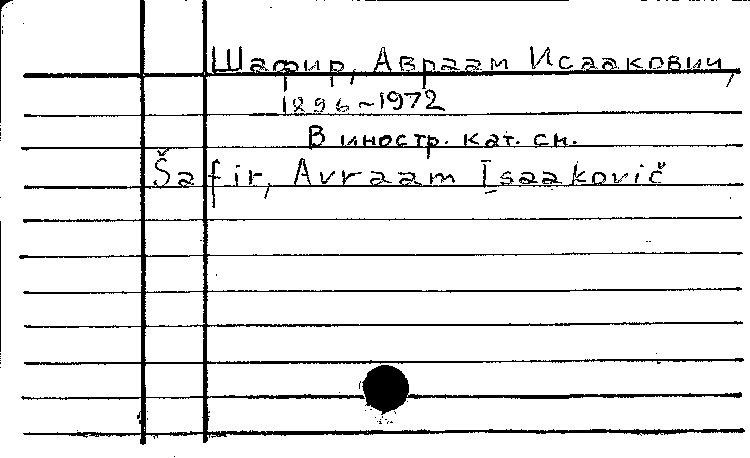 Шафир, Авраам Исаакович,
1896-1972
В иностр. кат. см.
Šafir, Avraam Isaakovič